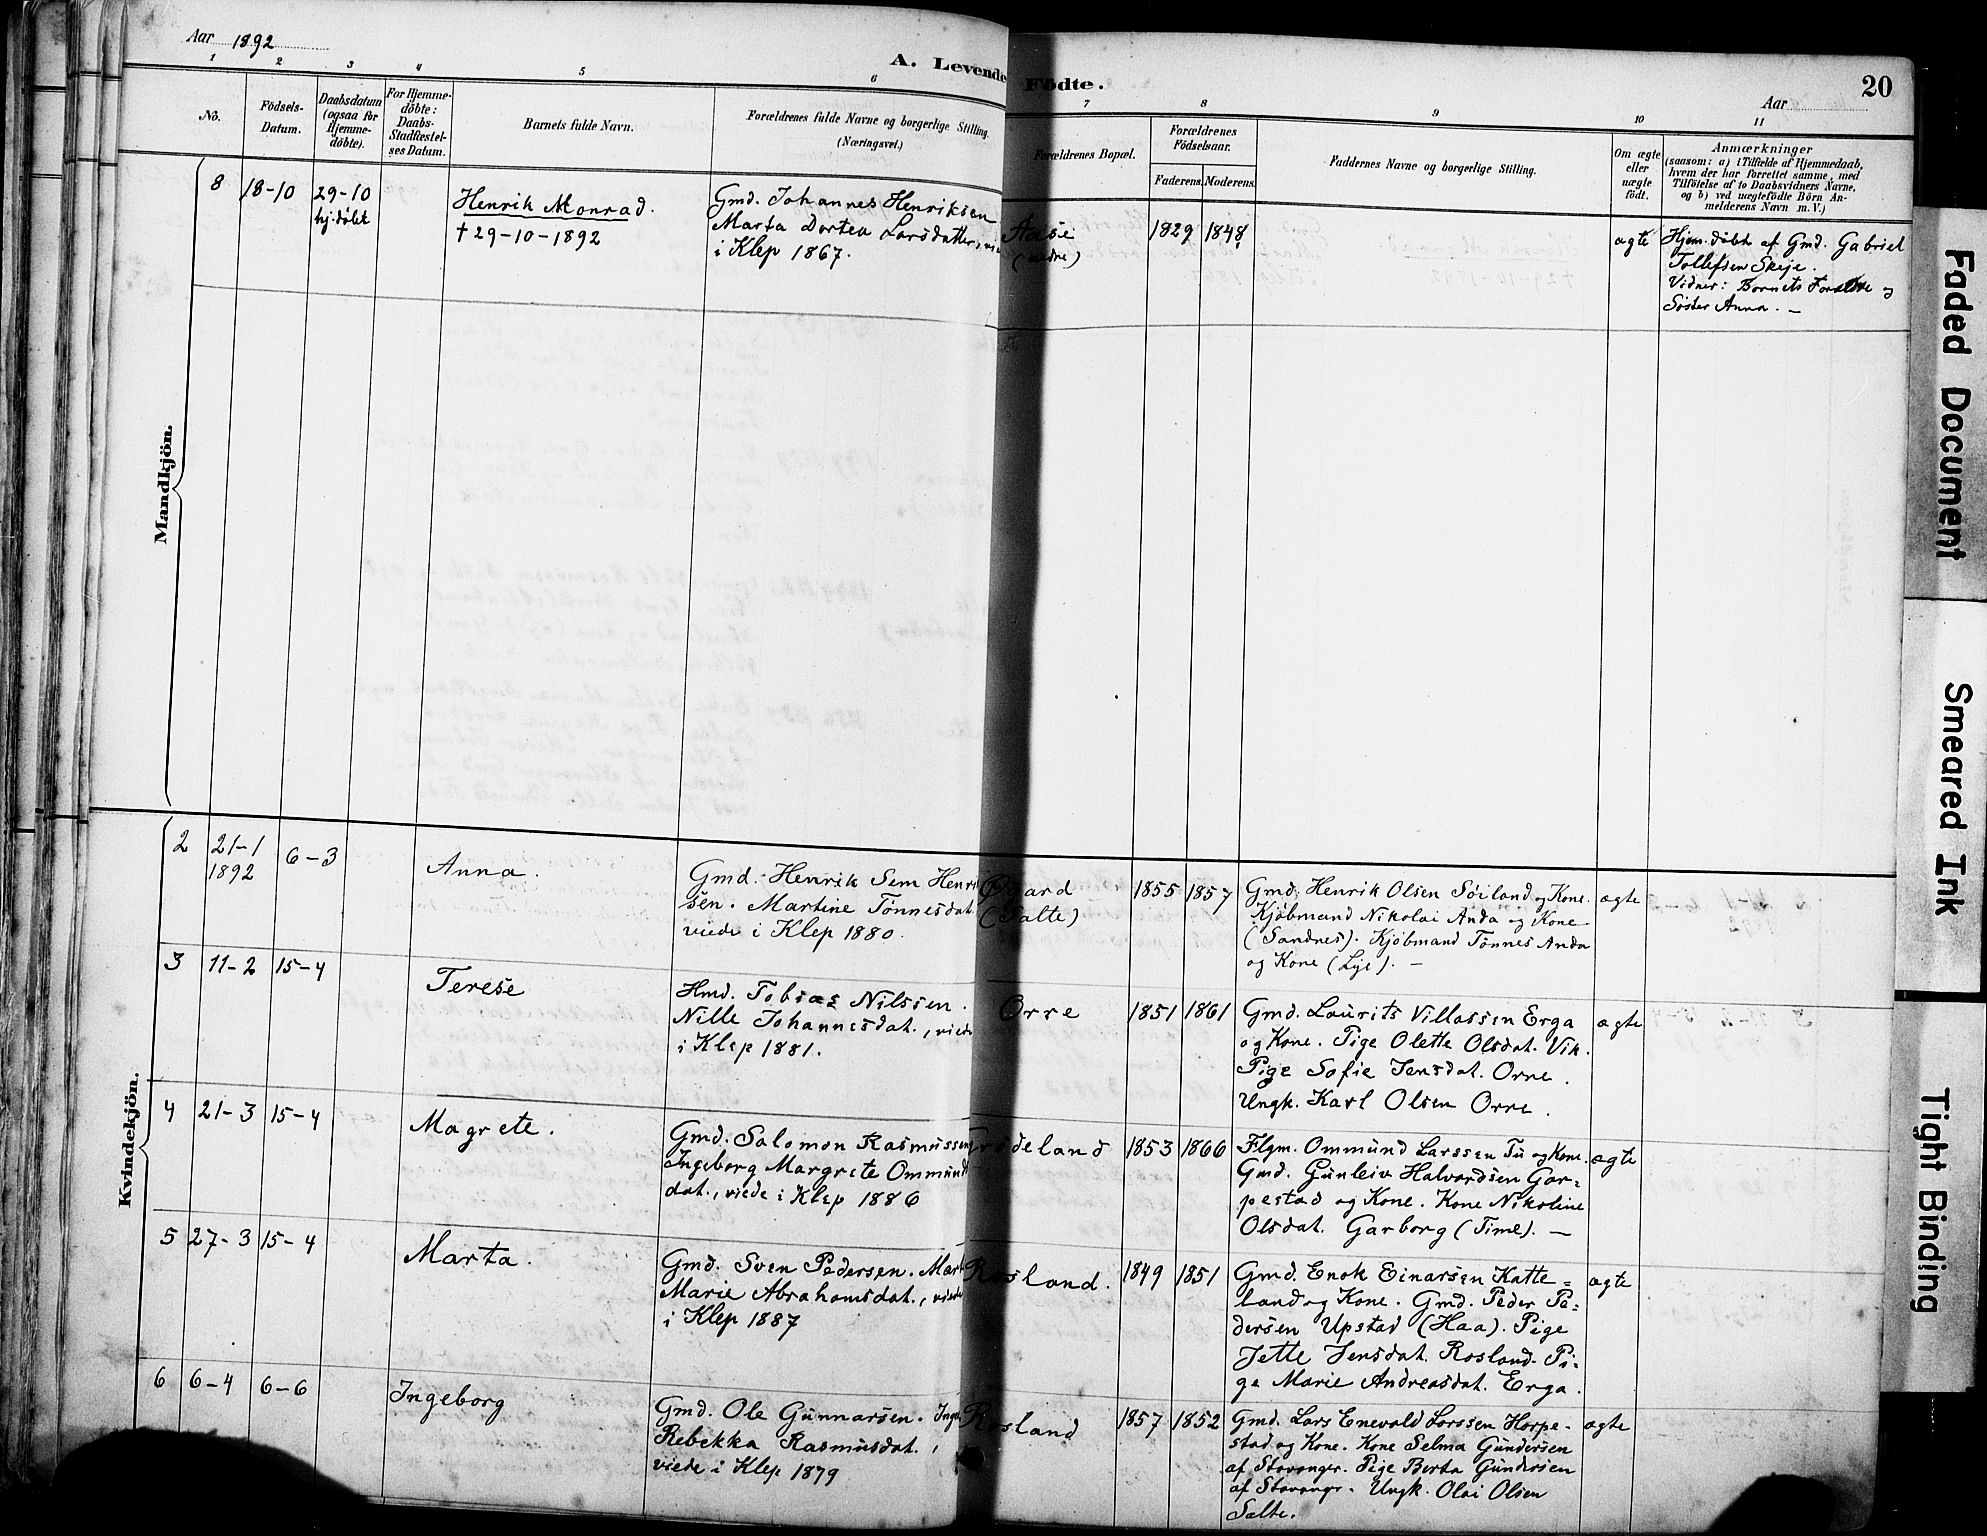 Aar 1892
A. Levende Födte.
Aar
20
1 2 3 4 5 6 7 8 9 10 11
No.
Födsels-
Datum.
Daabsdatum
(ogsaa for
Hjemme-
döbte).
For Hjemme-
döbte:
Daabs-
Stadfæstel-
ses Datum.
Barnets fulde Navn.
Forældrenes fulde Navne og borgerlige Stilling.
(Næringsvei.)
Forældrenes Bopæl.
Forældrenes
Födselsaar.
Faderens. Moderens.
Faddernes Navne og borgerlige Stilling.
Om ægte
eller
uægte
födt.
Anmærkninger
(saasom: a) i Tilfælde af Hjemmedaab,
hvem der har forrettet samme, med
Tilföielse af to Daabsvidners Navne,
og b) ved uægtefödte Börn An-
melderens Navn m. V.)
Mandkjön.
8 18-10 29-10
hj. døbt
Henrik Monrad.
† 29-10-1892
Gmd. Johannes Henriksen
Marta Dortea Larsdatter, vi
i Klep 1867.
Aase
1829 1848
ægte
Hjem. døbt af Gmd. Gabriel
Tollefsen Skeje.
Vidner: Barnets Forældre og
Søster Anna. —
Kvindekjön.
2 21-1
1892
6-3
Anna.
Gmd. Henrik Sem Henri
sen. Martine Tønnesdat.
viede i Klep 1880.
(Salte)
1855 1857
Gmd. Henrik Olsen Søiland og Kone.
Kjøbmand Nikolai Anda og Kone
(Sandnes). Kjøbmand Tønnes Anda
og Kone (Lye). —
ægte
3 11-2 15-4
Terese
Hmd. Tobias Nilssen.
Nille Johannesdat., viede
i Klep 1881.
Orre
1851 1861
Gmd. Laurits Villassen Erga
og Kone. Pige Olette Olsdat. Vik.
Pige Sofie Jensdat. Orre.
Ungk. Karl Olsen Orre.
ægte
4 21-3 15-4
Magrete.
Gmd. Salomon Rasmussen
Ingeborg Margrete Ommund
dat., viede i Klep 1886
Grødeland
1853 1866
Flgm. Ommund Larssen Tu og Kone.
Gmd. Gunleiv Halvardsen Gar=
pestad og Kone. Kone Nikoline
Olsdat. Garborg (Time). —
ægte
5 27-3 15-4
Marta.
Gmd. Sven Pedersen. Mart
Marie Abrahamsdat., viede
i Klep 1887
Rosland.
1849 1851
Gmd. Enok Einarsen Katte=
land og Kone. Gmd. Peder Pe=
dersen Upstad (Haa). Pige
Jette Jensdat. Rosland. Pi=
ge Marie Andreasdat. Erga.
ægte
6 6-4 6-6
Ingeborg
Gmd. Ole Gunnarsen. Inge
Rebekka Rasmusdat.,
viede i Klep 1879
Rosland
1857 1852
Gmd. Lars Enevald Larssen Horpe-
stad og Kone. Kone Selma Gundersen
af Stavanger. Pige Berta Gundersen
af Stavangr. Ungk. Olai Olsen
Salte.
ægte
Faded Document
Smeared Ink
Tight Binding